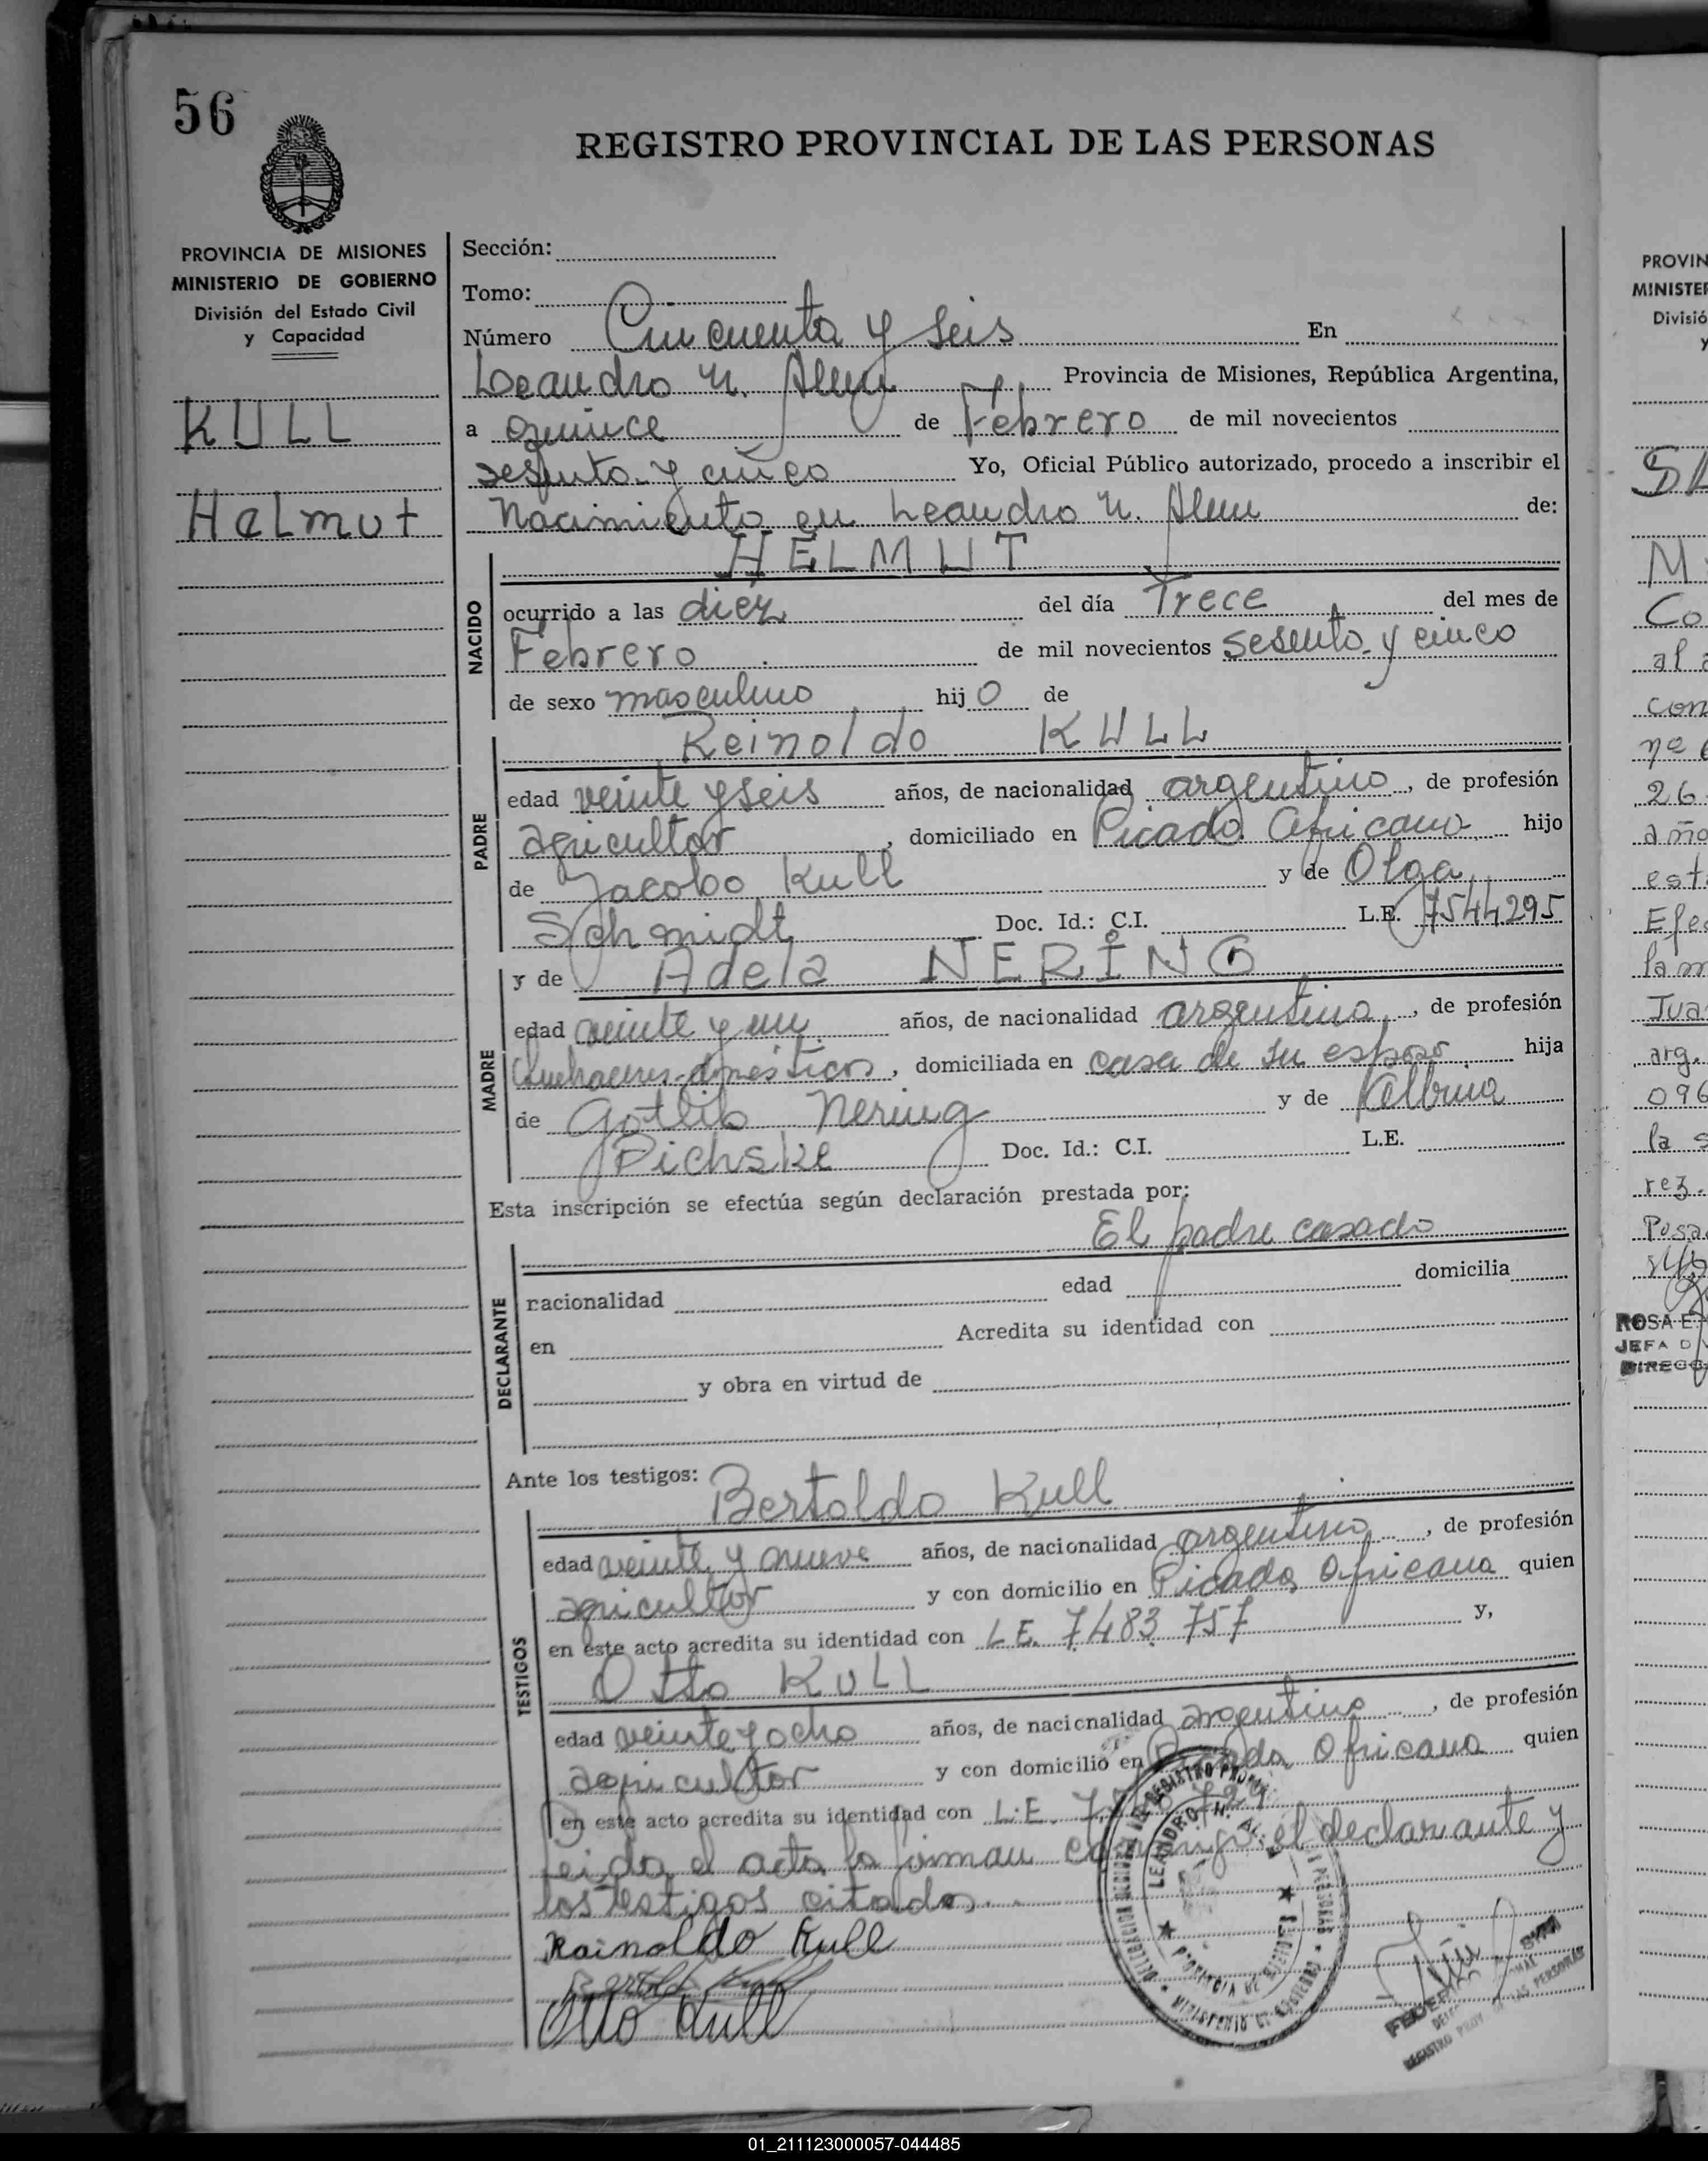 56
REGISTRO PROVINCIAL DE LAS PERSONAS
PROVINCIA DE MISIONES
MINISTERIO DE GOBIERNO
División del Estado Civil
y Capacidad
KULL
Helmut
Sección:
Tomo:
Número Cincuenta y seis En
Leandro N. Alem Provincia de Misiones, República Argentina,
a quince de Febrero de mil novecientos
sesenta y cinco Yo, Oficial Público autorizado, procedo a inscribir el
Nacimiento en Leandro N. Alem de:
HELMUT
NACIDO
ocurrido a las diez del día Trece del mes de
Febrero de mil novecientos sesenta y cinco
de sexo masculino hijo de
Reinoldo KULL
PADRE
edad veinte y seis años, de nacionalidad argentino, de profesión
agricultor, domiciliado en Picada Africana hijo
de Jacobo Kull y de Olga
Schmidt Doc. Id.: C.I. L.E. 7544295
y de Adela NERING
MADRE
edad veinte y un años, de nacionalidad argentina, de profesión
Quehaceres domésticos, domiciliada en casa de su esposo hija
de Gotlib Nering y de Albina
Pichske Doc. Id.: C.I. L.E.
Esta inscripción se efectúa según declaración prestada por:
El padre casado
DECLARANTE
nacionalidad edad domicilia
en Acredita su identidad con
y obra en virtud de
Ante los testigos:
Bertoldo Kull
TESTIGOS
edad veinte y nueve años, de nacionalidad argentino, de profesión
agricultor y con domicilio en Picada Africana quien
en este acto acredita su identidad con L.E. 7483757 y,
Otto Kull
edad veinte y ocho años, de nacionalidad argentino, de profesión
agricultor y con domicilio en Picada Africana quien
en este acto acredita su identidad con L.E.
Leida el acta la firman conmigo el declarante y
los testigos citados.
Reinoldo Kull
Bertoldo Kull
Otto Kull
LEANDRO N. ALEM
PROVINCIA DE MISIONES
MINISTERIO DE GOBIERNO
REGISTRO PROV. DE LAS PERSONAS
PROVIN
MINISTER
Divisió
y
Co
al a
con
26
año
est
Efec
la m
Jua
arg.
096
la s
rez.
Posa
ROSA E.
JEFA D
DIRECC
01_211123000057-044485